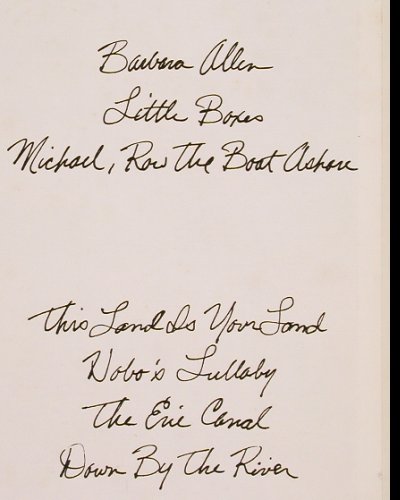 Barbara Allen
Little Boxes
Michael, Row The Boat Ashore
This Land Is Your Land
Hobo's Lullaby
The Erie Canal
Down By The River